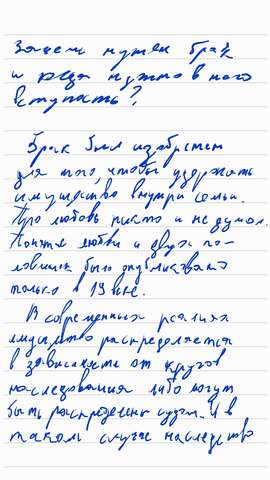 Зачем нужен брак
и когда нужно в него
вступать?
Брак был изобретен
для того, чтобы удержать
имущество внутри семьи.
Про любовь никто и не думал.
Понятие любви и двух по-
ловинок было
только в 19 веке.
В современных реалиях
имущество распределяется
в зависимости от кругов
наследования либо могут
быть распределены судом. И в
таком случае наследство